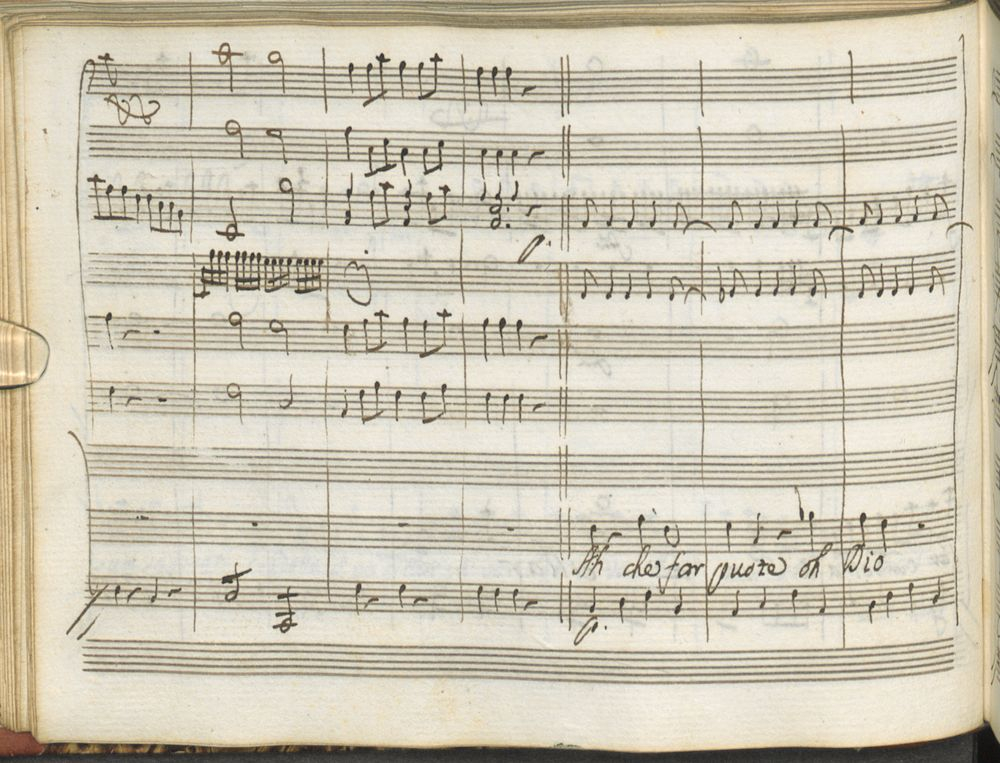 p.
Ah che far quote oh Dio
p.